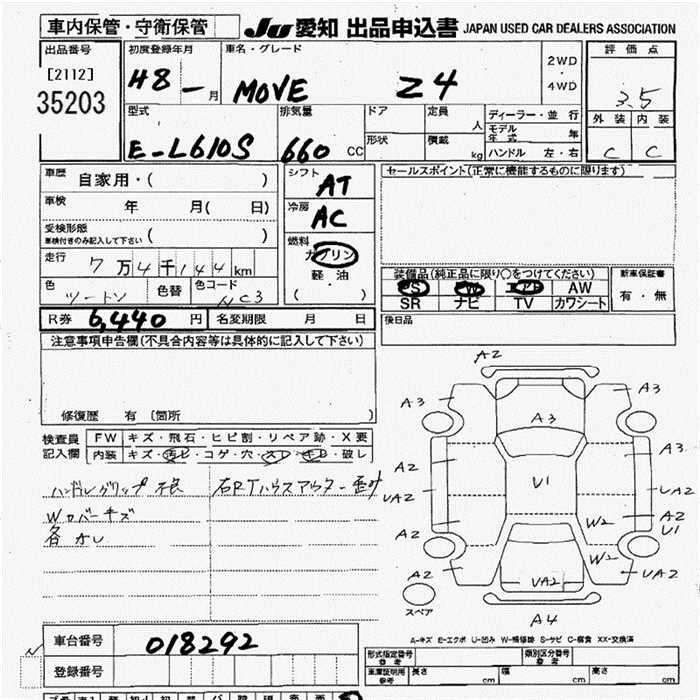 車内保管・守衛保管 JU 愛知 出品申込書 JAPAN USED CAR DEALERS ASSOCIATION
出品番号 初度登録年月 車名・グレード 2WD ・ 4WD 評価点
[2112] H8 - 月 MOVE Z4 3.5
35203
型式 排気量 ドア 定員 人 ディーラー・並行 外装 内装
モデル年式 年
E-L610S 660 CC 形状 積載 kg ハンドル 左・右 C C
車歴 自家用・( ) シフト AT セールスポイント(正常に機能するものに限ります)
車検 年 月( 日) 冷房 AC
受検形態 車検付きのみ記入して下さい ( )
燃料 ガソリン 軽・油 ( )
走行 7万4千144km
装備品(純正品に限り○をつけてください) 新車保証書
PS PW エアB AW 有・無
SR ナビ TV カワシート
色 ツートン 色替 色コード NC3
R券 6,440 円 名変期限 月 日 後日品
注意事項申告欄(不具合内容等は具体的に記入して下さい)
修復歴 有 (箇所 )
検査員記入欄 FW キズ・飛石・ヒビ割・リペア跡・X要
内装 キズ・汚れ・コゲ・穴・スレ・キレ・破レ
ハンドルグリップ 不良 右RTハウスアウター歪み
Wカバーキズ
各カレ
A2
A3 A3 A3
A2 A3
UA2 U1 UA2
A2 W2 A2 U1
A2 W2 UA2
UA2
スペア A4
A-キズ E-エクボ U-凹み W-補修跡 S-サビ C-腐食 XX-交換済
車台番号 018292
登録番号
形式指定番号 参考 類別区分番号 参考
車庫証明用 参考 長さ cm 幅 cm 高さ cm